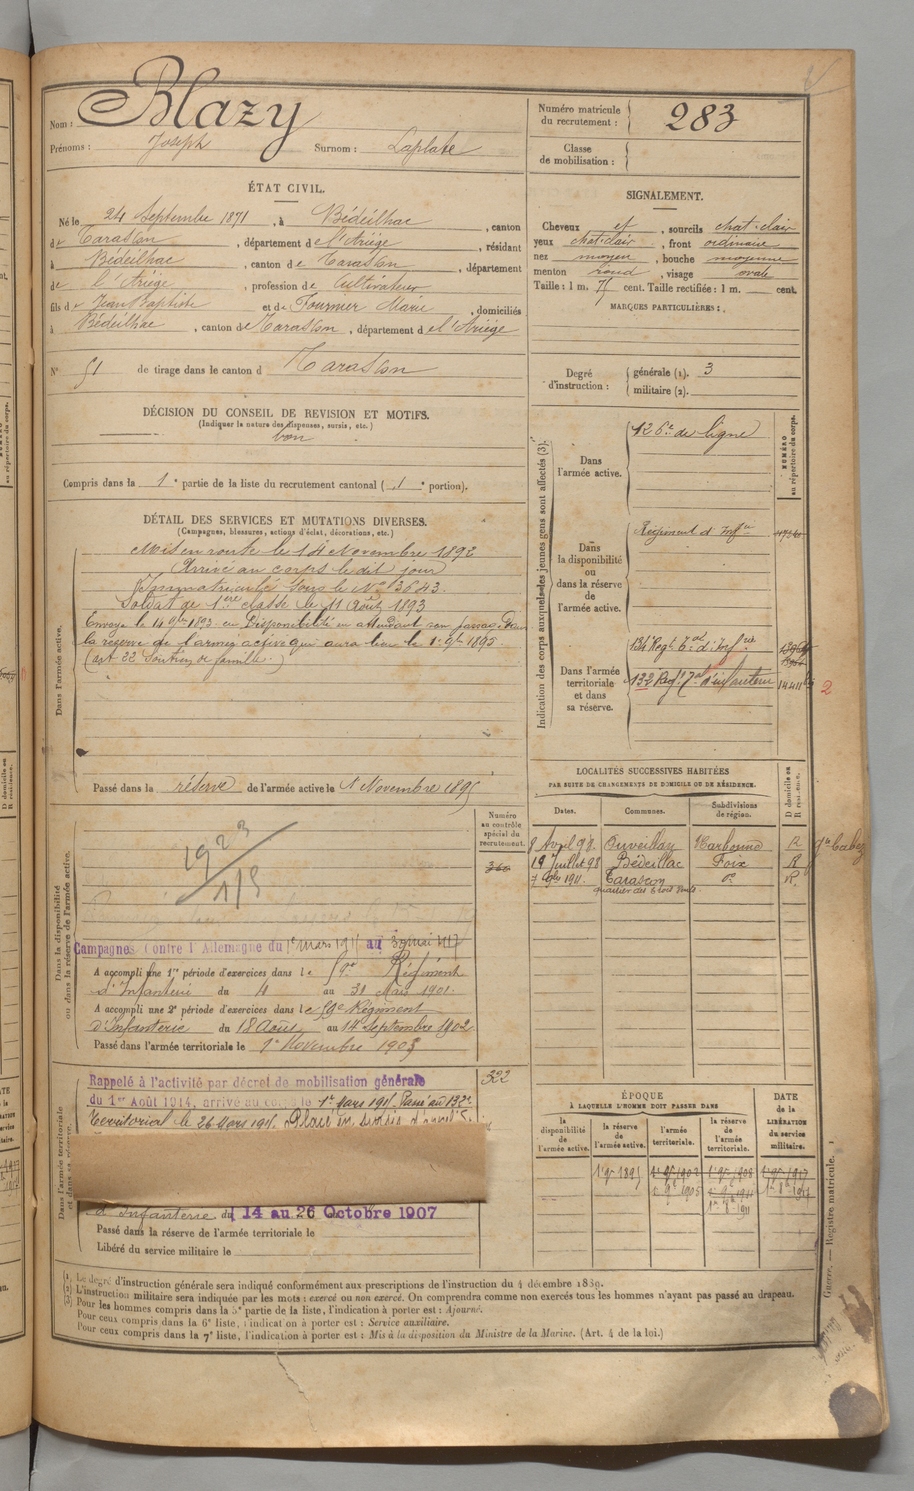 Nom : Blazy
Prénoms : Joseph Surnom : Laplate
ÉTAT CIVIL.
Né le 24 Septembre 1871, à Bédeilhac, canton
de Tarascon, département de l'Ariège, résidant
à Bédeilhac, canton de Tarascon, département
de l'Ariège, profession de Cultivateur
fils de Jean Baptiste et de Fournier Marie, domiciliés
à Bédeilhac, canton de Tarascon, département de l'Ariège
N° 51 de tirage dans le canton d Tarascon
DÉCISION DU CONSEIL DE REVISION ET MOTIFS.
(Indiquer la nature des dispenses, sursis, etc.)
bon
Compris dans la 1e partie de la liste du recrutement cantonal (1e portion).
DÉTAIL DES SERVICES ET MUTATIONS DIVERSES.
(Campagnes, blessures, actions d'éclat, décorations, etc.)
Dans l'armée active.
Mis en route le 14 Novembre 1892
Arrivé au corps le dit jour
Immatriculé sous le N° 3643.
Soldat de 1ère classe le 11 Août 1893
Envoyé le 14 9bre 1893 en Disponibilité en attendant son passage dans
la réserve de l'armée active qui aura lieu le 1er 9bre 1895
(art 22 Soutien de famille.)
Passé dans la réserve de l'armée active le 1er Novembre 1895
Dans la disponibilité ou dans la réserve de l'armée active.
Numéro au contrôle spécial du recrutement.
360
1923
1/5
Campagnes Contre l'Allemagne du 1er mars 1915 au 30 mai 1917
A accompli une 1re période d'exercices dans le 59e Régiment
d'Infanterie du 4 au 31 Mars 1901.
A accompli une 2e période d'exercices dans le 59e Régiment
d'Infanterie du 18 Août au 14 Septembre 1902
Passé dans l'armée territoriale le 1er Novembre 1905
Dans l'armée territoriale et dans sa réserve.
322
Rappelé à l'activité par décret de mobilisation générale
du 1er Août 1914, arrivé au corps le 1er Mars 1915 Passé au 132e
Territorial le 26 Mars 1915. Placé en sursis d'appel
d'Infanterie du 14 au 26 Octobre 1907
Passé dans la réserve de l'armée territoriale le
Libéré du service militaire le
Numéro matricule du recrutement : 283
Classe de mobilisation :
SIGNALEMENT.
Cheveux et, sourcils chat-clair
yeux chat-clair, front ordinaire
nez moyen, bouche moyenne
menton rond, visage ovale
Taille : 1 m. cent. Taille rectifiée : 1 m. cent.
MARQUES PARTICULIÈRES :
Degré d'instruction : générale (1). 3
militaire (2).
Indication des corps auxquels les jeunes gens sont affectés (3).
NUMÉRO au répertoire du corps.
Dans l'armée active.
126e de ligne
Dans la disponibilité ou dans la réserve de l'armée active.
Régiment d'Infie
Dans l'armée territoriale et dans sa réserve.
134 Regt Tal d'Infrie
132 Regt Tal d'infanterie
2
LOCALITÉS SUCCESSIVES HABITÉES
PAR SUITE DE CHANGEMENTS DE DOMICILE OU DE RÉSIDENCE.
Dates. Communes. Subdivisions de région. D domicile ou R résidence.
8 Avril 98 Cuveillan Narbonne R
19 Juillet 98 Bédeillac Foix R
7 1911. Tarascon do R.
quartier des trois Ponts
ÉPOQUE
À LAQUELLE L'HOMME DOIT PASSER DANS
la disponibilité de l'armée active. la réserve de l'armée active. l'armée territoriale. la réserve de l'armée territoriale. DATE de la LIBÉRATION du service militaire.
1er 9bre 1895
Guerre. — Registre matricule. 1
(1) Le degré d'instruction générale sera indiqué conformément aux prescriptions de l'instruction du 4 décembre 1889.
(2) L'instruction militaire sera indiquée par les mots : exercé ou non exercé. On comprendra comme non exercés tous les hommes n'ayant pas passé au drapeau.
(3) Pour les hommes compris dans la 5e partie de la liste, l'indication à porter est : Ajourné.
Pour ceux compris dans la 6e liste, l'indication à porter est : Service auxiliaire.
Pour ceux compris dans la 7e liste, l'indication à porter est : Mis à la disposition du Ministre de la Marine. (Art. 4 de la loi.)